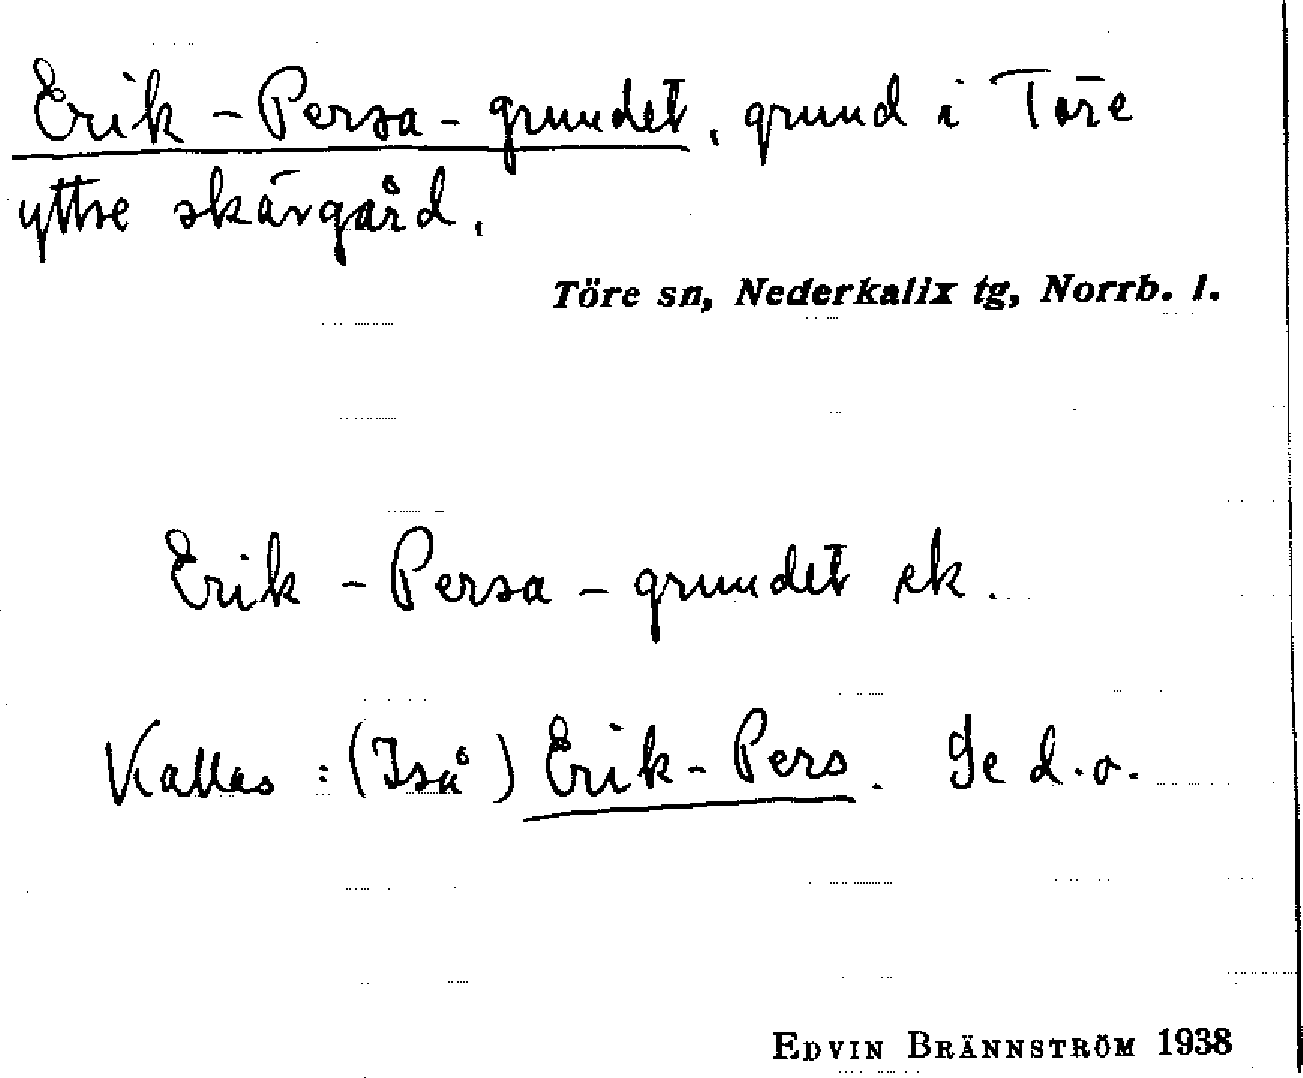 Erik-Persa-grundet, grund i Töre
yttre skärgård.
Töre sn, Nederkalix tg, Norrb. l.
Erik-Persa-grundet ek.
Kallas: (Iså) Erik-Pers. Se d.o.
EDVIN BRÄNNSTRÖM 1938